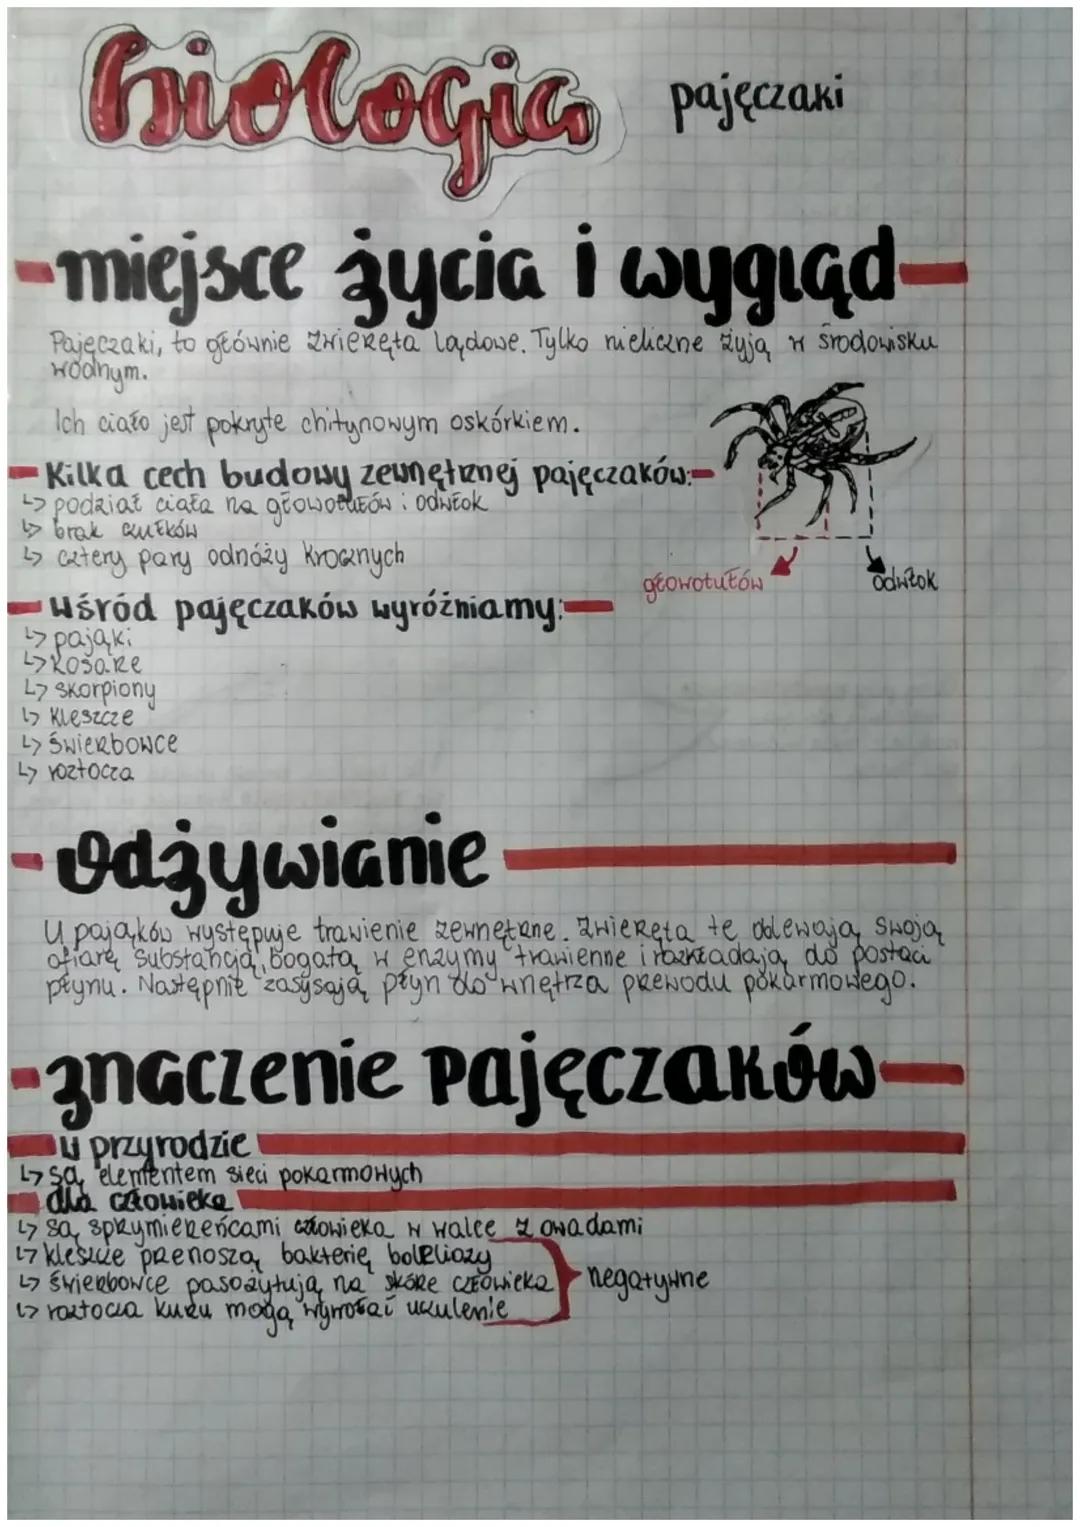 biologia
pajęczaki
miejsce życia i wygląd
Pajęczaki, to głównie zwierzęta lądowe. Tylko nieliczne żyją w środowisku
wodnym.
Ich ciało jest pokryte chitynowym oskórkiem.
Kilka cech budowy zewnętrznej pajęczaków:
↳ podział ciała na głowotułów i odwłok
↳ brak czułków
↳ cztery pary odnóży krocznych
głowotułów
odwłok
Wśród pajęczaków wyróżniamy:
↳ pająki
↳ kosarze
↳ skorpiony
↳ kleszcze
↳ świerzbowce
↳ roztocza
odżywianie
U pająków występuje trawienie zewnętrzne. Zwierzęta te oblewają swoją
ofiarę substancją bogatą w enzymy trawienne i rozkładają do postaci
płynu. Następnie zasysają płyn do wnętrza przewodu pokarmowego.
znaczenie pajęczaków
w przyrodzie
↳ są elementem sieci pokarmowych
dla człowieka
↳ są sprzymierzeńcami człowieka w walce z owadami
↳ kleszcze przenoszą bakterię boreliozy
↳ świerzbowce pasożytują na skórze człowieka
negatywne
↳ roztocza kurzu mogą wywołać uczulenie